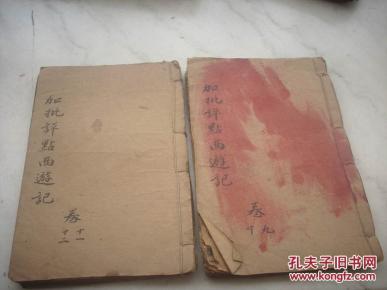 加批評點西遊記
卷
十一
十二
加批評點西遊記
卷
九
十
孔夫子旧书网